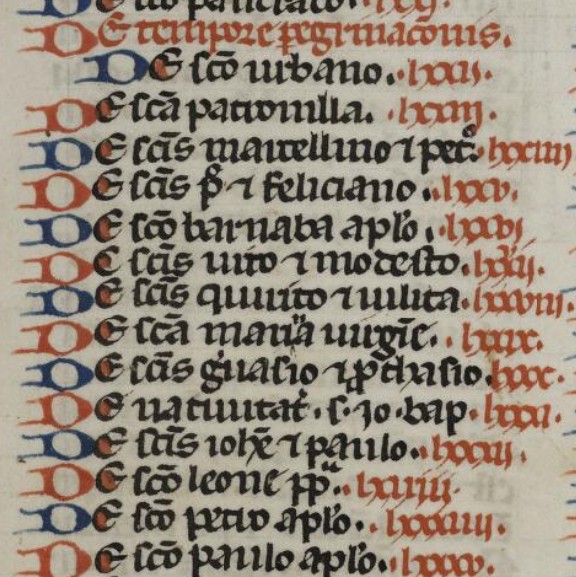 DE sco pancracio. lxxi.
DE tempore pegrinaconis.
DE sco urbano. lxxii.
DE sca patronilla. lxxiii.
DE scis marcellino ⁊ pet. lxxiiii
DE scis p̄ ⁊ feliciano. lxxv.
DE sco barnaba aplo. lxxvi
DE scis uito ⁊ modesto. lxxvii.
DE scis quirito ⁊ iulita. lxxviii.
DE sca maria uirgie. lxxix.
DE scis guasio ⁊ pthasio. lxxx.
DE natiuitat. s. io. bap. lxxxi.
DE scis iohe ⁊ paulo. lxxxii.
DE sco leone pp. lxxxiii.
DE sco petro aplo. lxxxiiii.
DE sco paulo aplo. lxxxv.